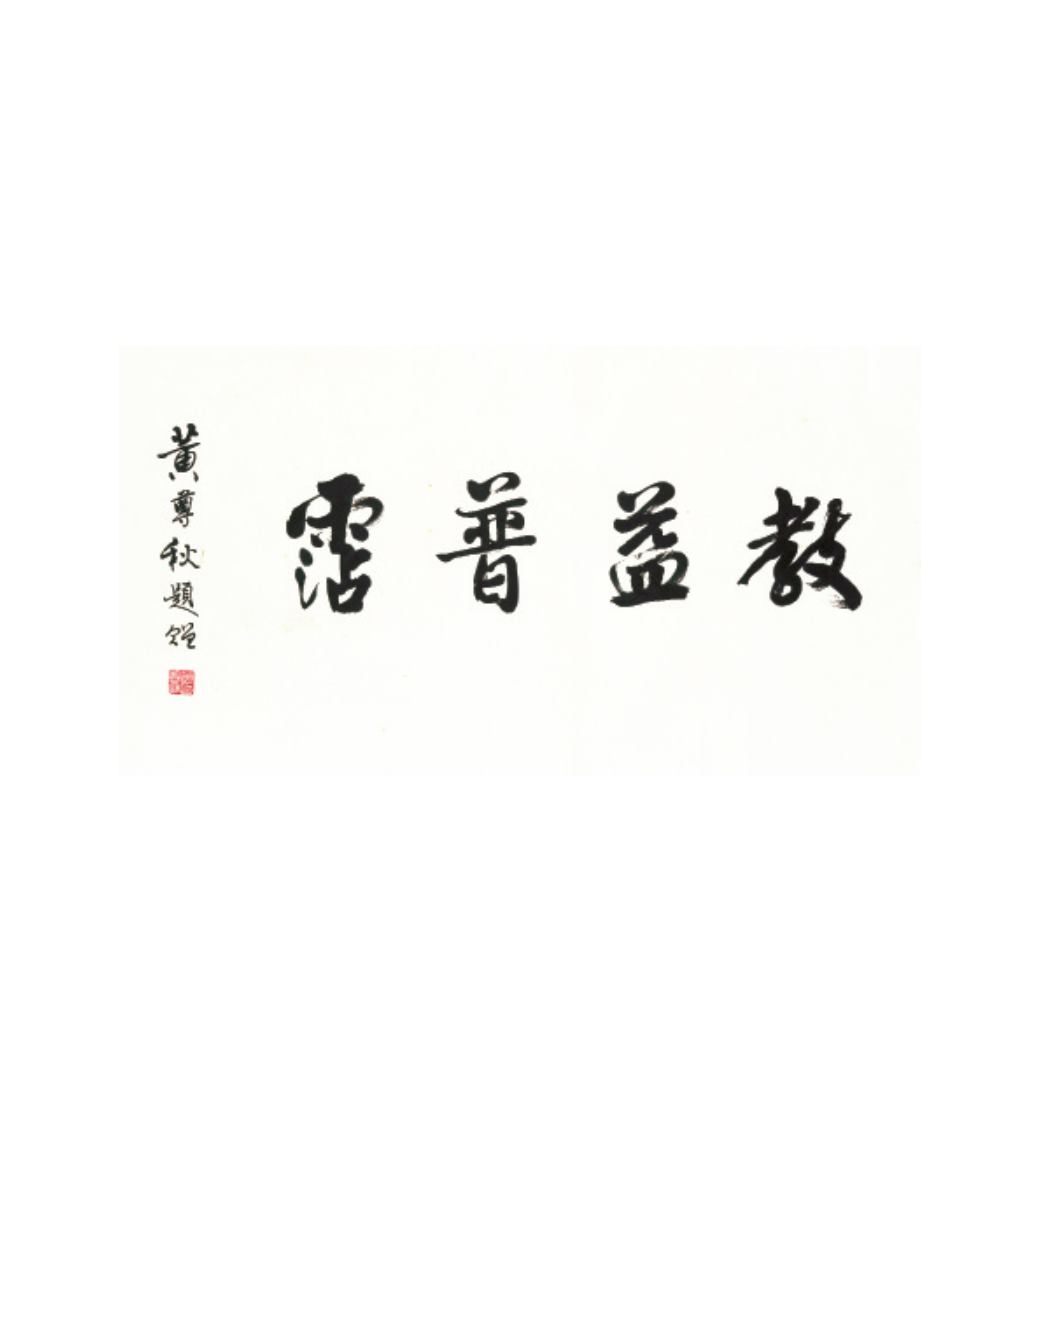 教益普霑
黃尊秋題贈